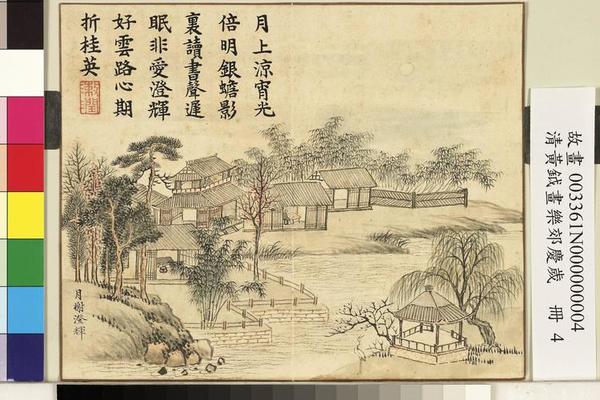 月上涼宵光
倍明銀蟾影
裏讀書聲遲
眠非愛澄輝
好雲路心期
折桂英
月榭澄輝
故畫 003361N000000004
清黃鉞畫樂郊慶歲 冊 4